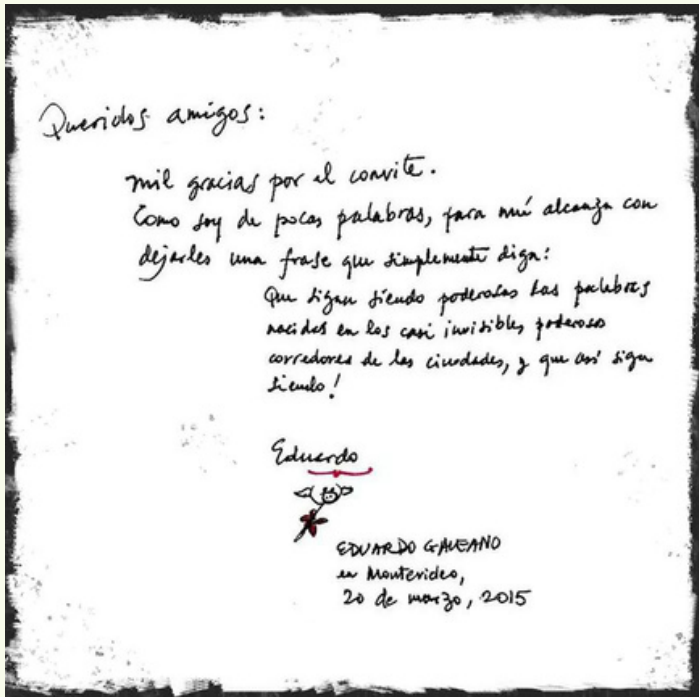 Queridos amigos:
mil gracias por el convite.
Como soy de pocas palabras, para mí alcanza con
dejarles una frase que simplemente diga:
Que sigan siendo poderosas las palabras
nacidas en los casi invisibles poderosos
corredores de las ciudades, y que así siga
siendo!
Eduardo
EDUARDO GALEANO
en Montevideo,
20 de marzo, 2015